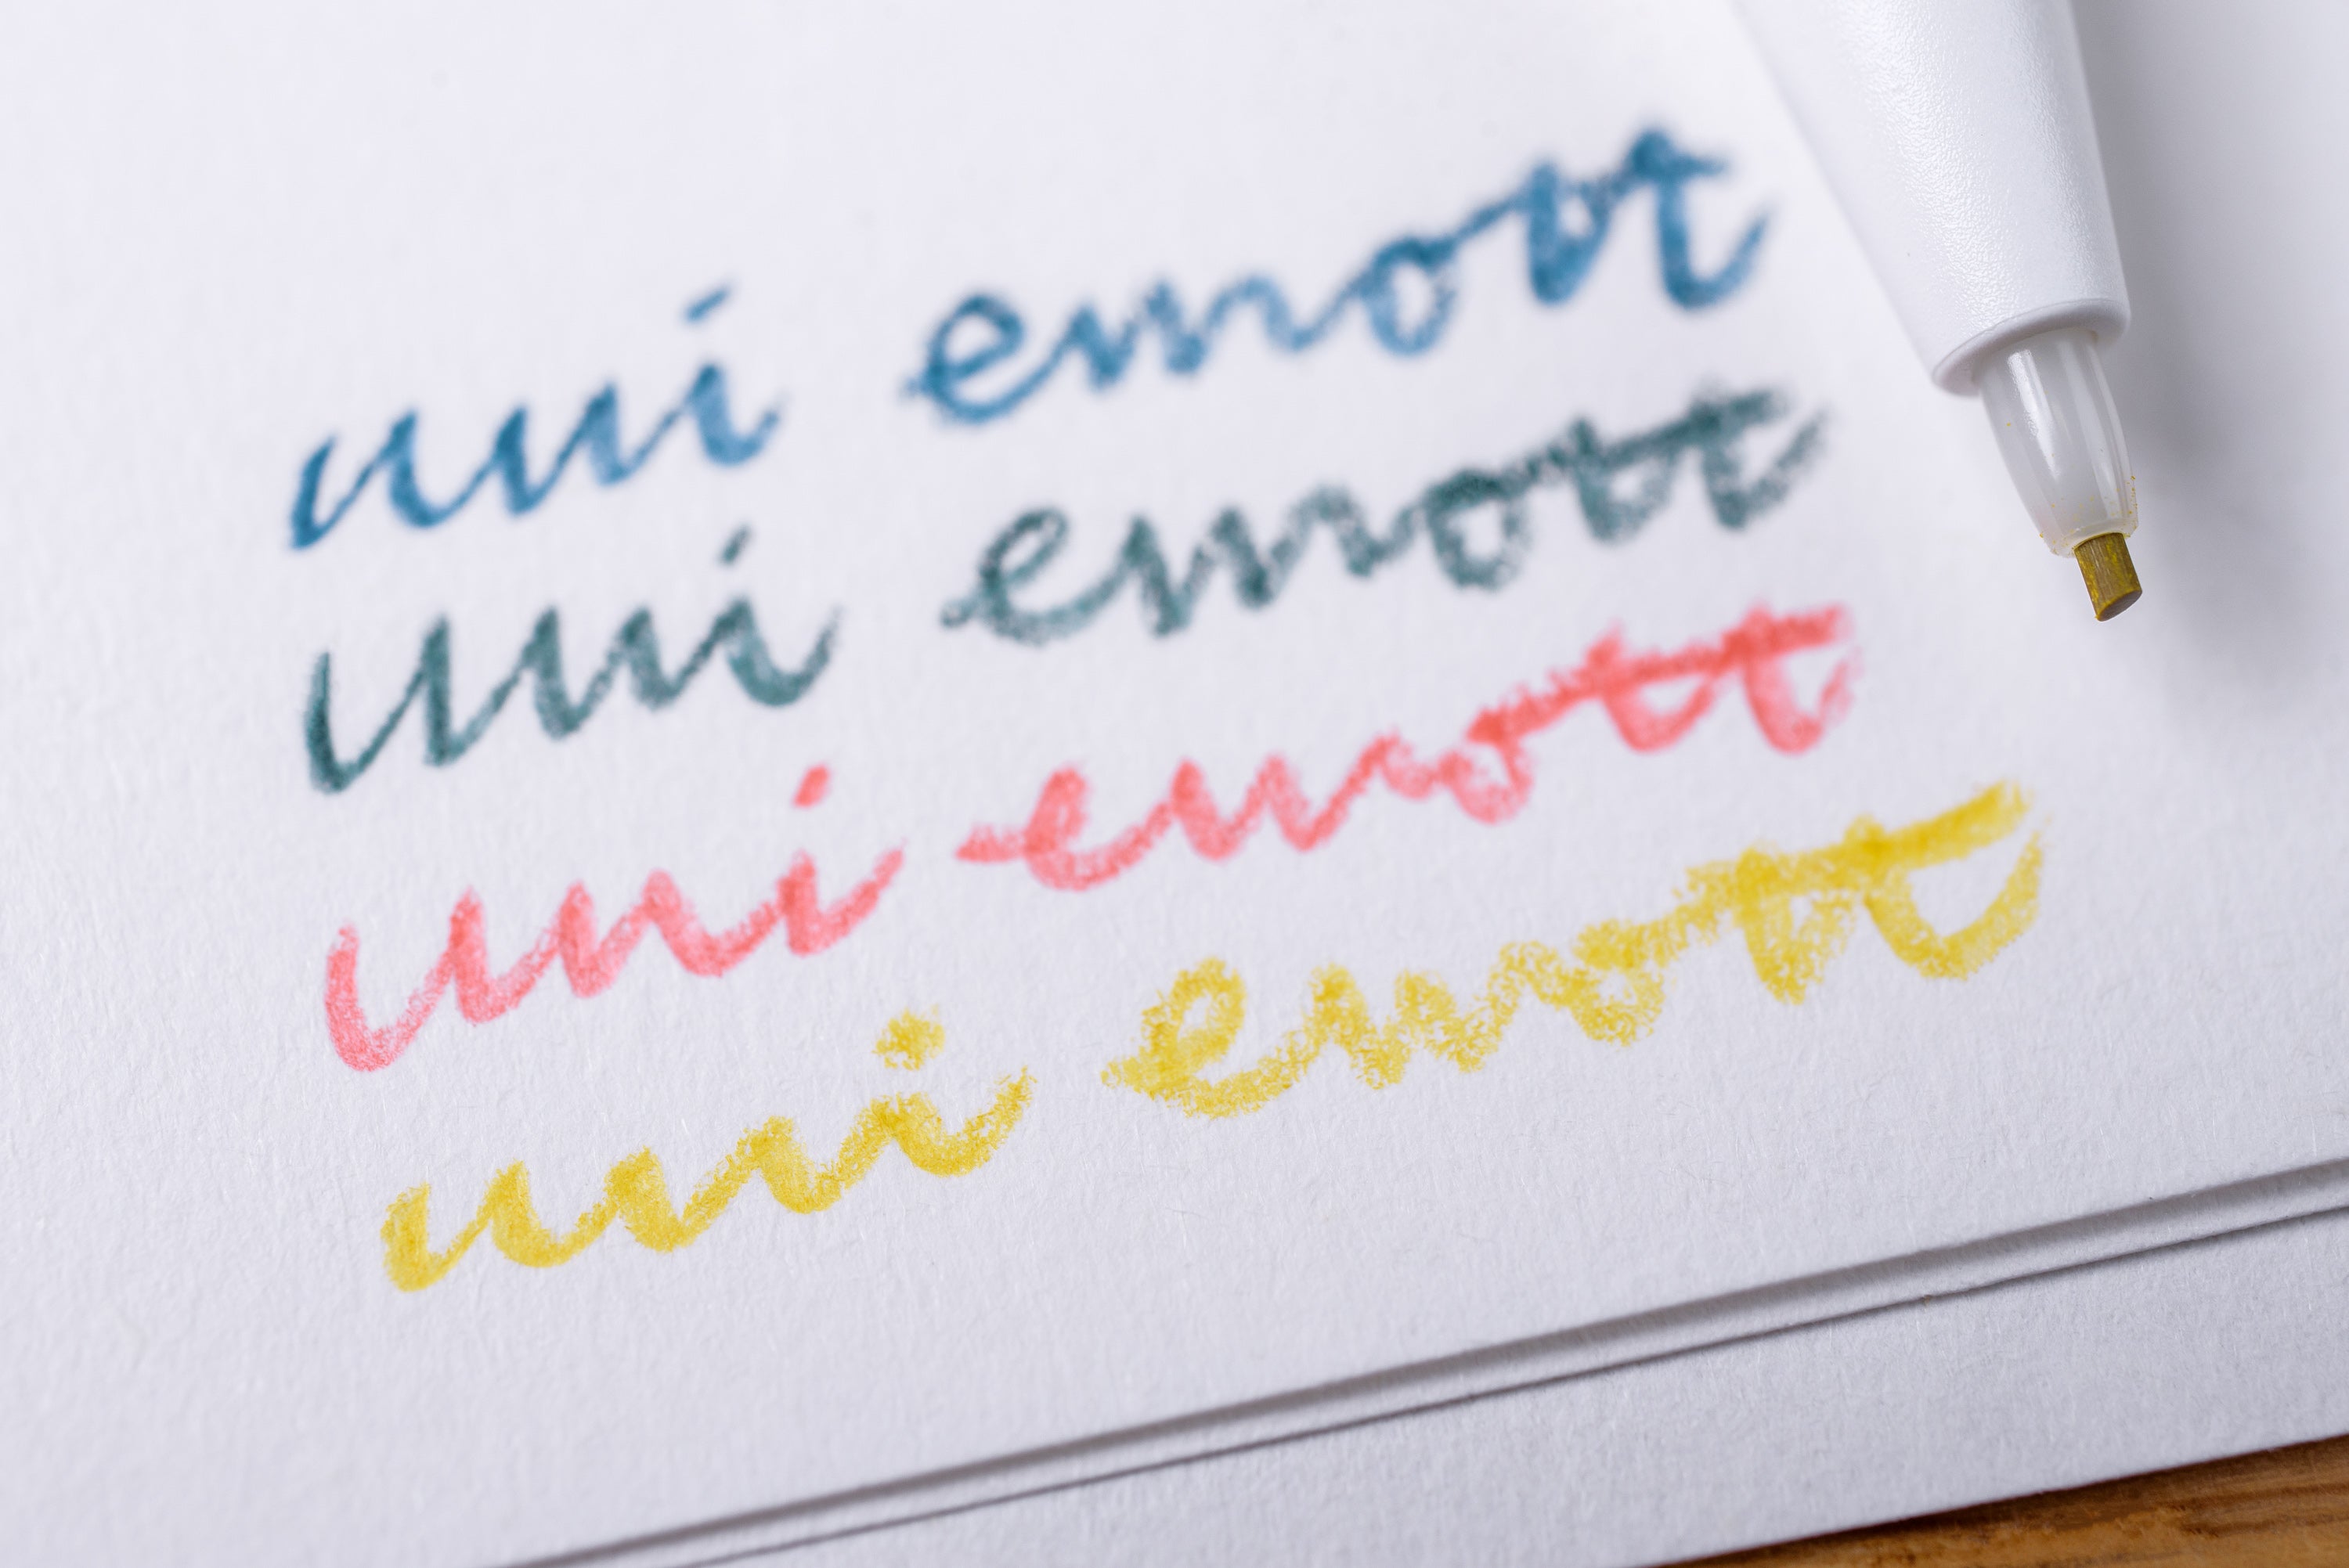 uni emott
uni emott
uni emott
uni emott